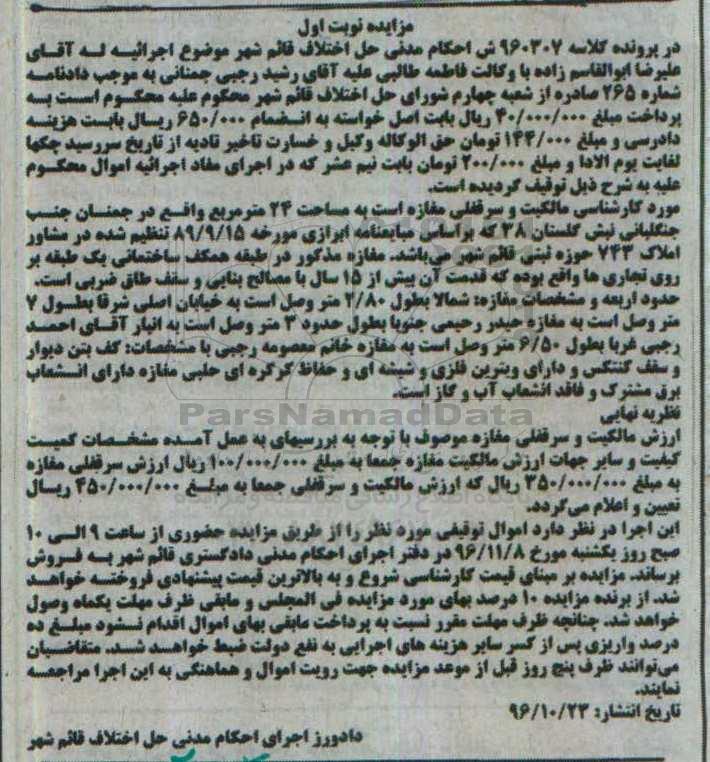 مزایده نوبت اول
در پرونده کلاسه ۹۶۰۳۰۷ ش احکام مدنی حل اختلاف قائم شهر موضوع اجرائیه له آقای
علیرضا ابوالقاسم زاده با وکالت فاطمه طالبی علیه آقای رشید رجبی جمنانی به موجب دادنامه
شماره ۲۶۵ صادره از شعبه چهارم شورای حل اختلاف قائم شهر محکوم علیه محکوم است به
پرداخت مبلغ ۴۰/۰۰۰/۰۰۰ ریال بابت اصل خواسته به انضمام ۶۵۰/۰۰۰ ریال بابت هزینه
دادرسی و مبلغ ۱۴۴/۰۰۰ تومان حق الوکاله وکیل و خسارت تاخیر تادیه از تاریخ سررسید چکها
لغایت یوم الادا و مبلغ ۲۰۰/۰۰۰ تومان بابت نیم عشر که در اجرای مفاد اجرائیه اموال محکوم
علیه به شرح ذیل توقیف گردیده است.
مورد کارشناسی مالکیت و سرقفلی مغازه است به مساحت ۲۴ مترمربع واقع در جمنان جنب
جنگلبانی نبش گلستان ۳۸ که براساس مبایعنامه ابرازی مورخه ۸۹/۹/۱۵ تنظیم شده در مشاور
املاک ۷۴۳ حوزه ثبتی قائم شهر می‌باشد. مغازه مذکور در طبقه همکف ساختمانی یک طبقه بر
روی تجاری ها واقع بوده که قدمت آن بیش از ۱۵ سال با مصالح بنایی و سقف طاق ضربی است.
حدود اربعه و مشخصات مغازه: شمالا بطول ۲/۸۰ متر وصل است به خیابان اصلی شرقا بطول ۷
متر وصل است به مغازه حیدر رحیمی جنوبا بطول حدود ۳ متر وصل است به انبار آقای احمد
رجبی غربا بطول ۶/۵۰ متر وصل است به مغازه خانم معصومه رجبی با مشخصات: کف بتن دیوار
و سقف کنتکس و دارای ویترین فلزی و شیشه ای و حفاظ کرکره ای حلبی مغازه دارای انشعاب
برق مشترک و فاقد انشعاب آب و گاز است.
ParsNamadData
نظریه نهایی
ارزش مالکیت و سرقفلی مغازه موصوف با توجه به بررسیهای به عمل آمده مشخصات کمیت
کیفیت و سایر جهات ارزش مالکیت مغازه جمعا به مبلغ ۱۰۰/۰۰۰/۰۰۰ ریال ارزش سرقفلی مغازه
به مبلغ ۳۵۰/۰۰۰/۰۰۰ ریال که ارزش مالکیت و سرقفلی جمعا به مبلغ ۴۵۰/۰۰۰/۰۰۰ ریال
تعیین و اعلام می‌گردد.
این اجرا در نظر دارد اموال توقیفی مورد نظر را از طریق مزایده حضوری از ساعت ۹ الی ۱۰
صبح روز یکشنبه مورخ ۹۶/۱۱/۸ در دفتر اجرای احکام مدنی دادگستری قائم شهر به فروش
برساند. مزایده بر مبنای قیمت کارشناسی شروع و به بالاترین قیمت پیشنهادی فروخته خواهد
شد. از برنده مزایده ۱۰ درصد بهای مورد مزایده فی المجلس و مابقی ظرف مهلت یکماه وصول
خواهد شد. چنانچه ظرف مهلت مقرر نسبت به پرداخت مابقی بهای اموال اقدام نشود مبلغ ده
درصد واریزی پس از کسر سایر هزینه های اجرایی به نفع دولت ضبط خواهد شد. متقاضیان
می‌توانند ظرف پنج روز قبل از موعد مزایده جهت رویت اموال و هماهنگی به این اجرا مراجعه
نمایند.
تاریخ انتشار: ۹۶/۱۰/۲۳
دادورز اجرای احکام مدنی حل اختلاف قائم شهر